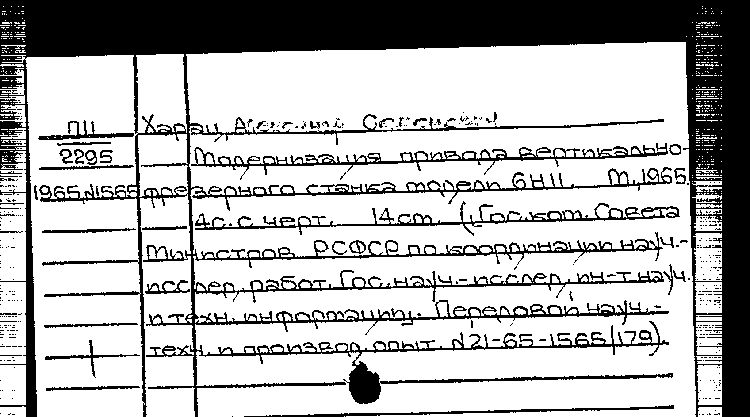 П11
Харац, Александр Семенович
2295
Модернизация привода вертикально-
1965, №1565
фрезерного станка модели 6Н11. М., 1965.
4с. с черт. 14см. (Гос. ком. Совета
Министров РСФСР по координации науч.-
исслед. работ. Гос. науч.-исслед. ин-т науч.
и техн. информации. Передовой науч.-
техн. и производ. опыт. №21-65-1565/179).